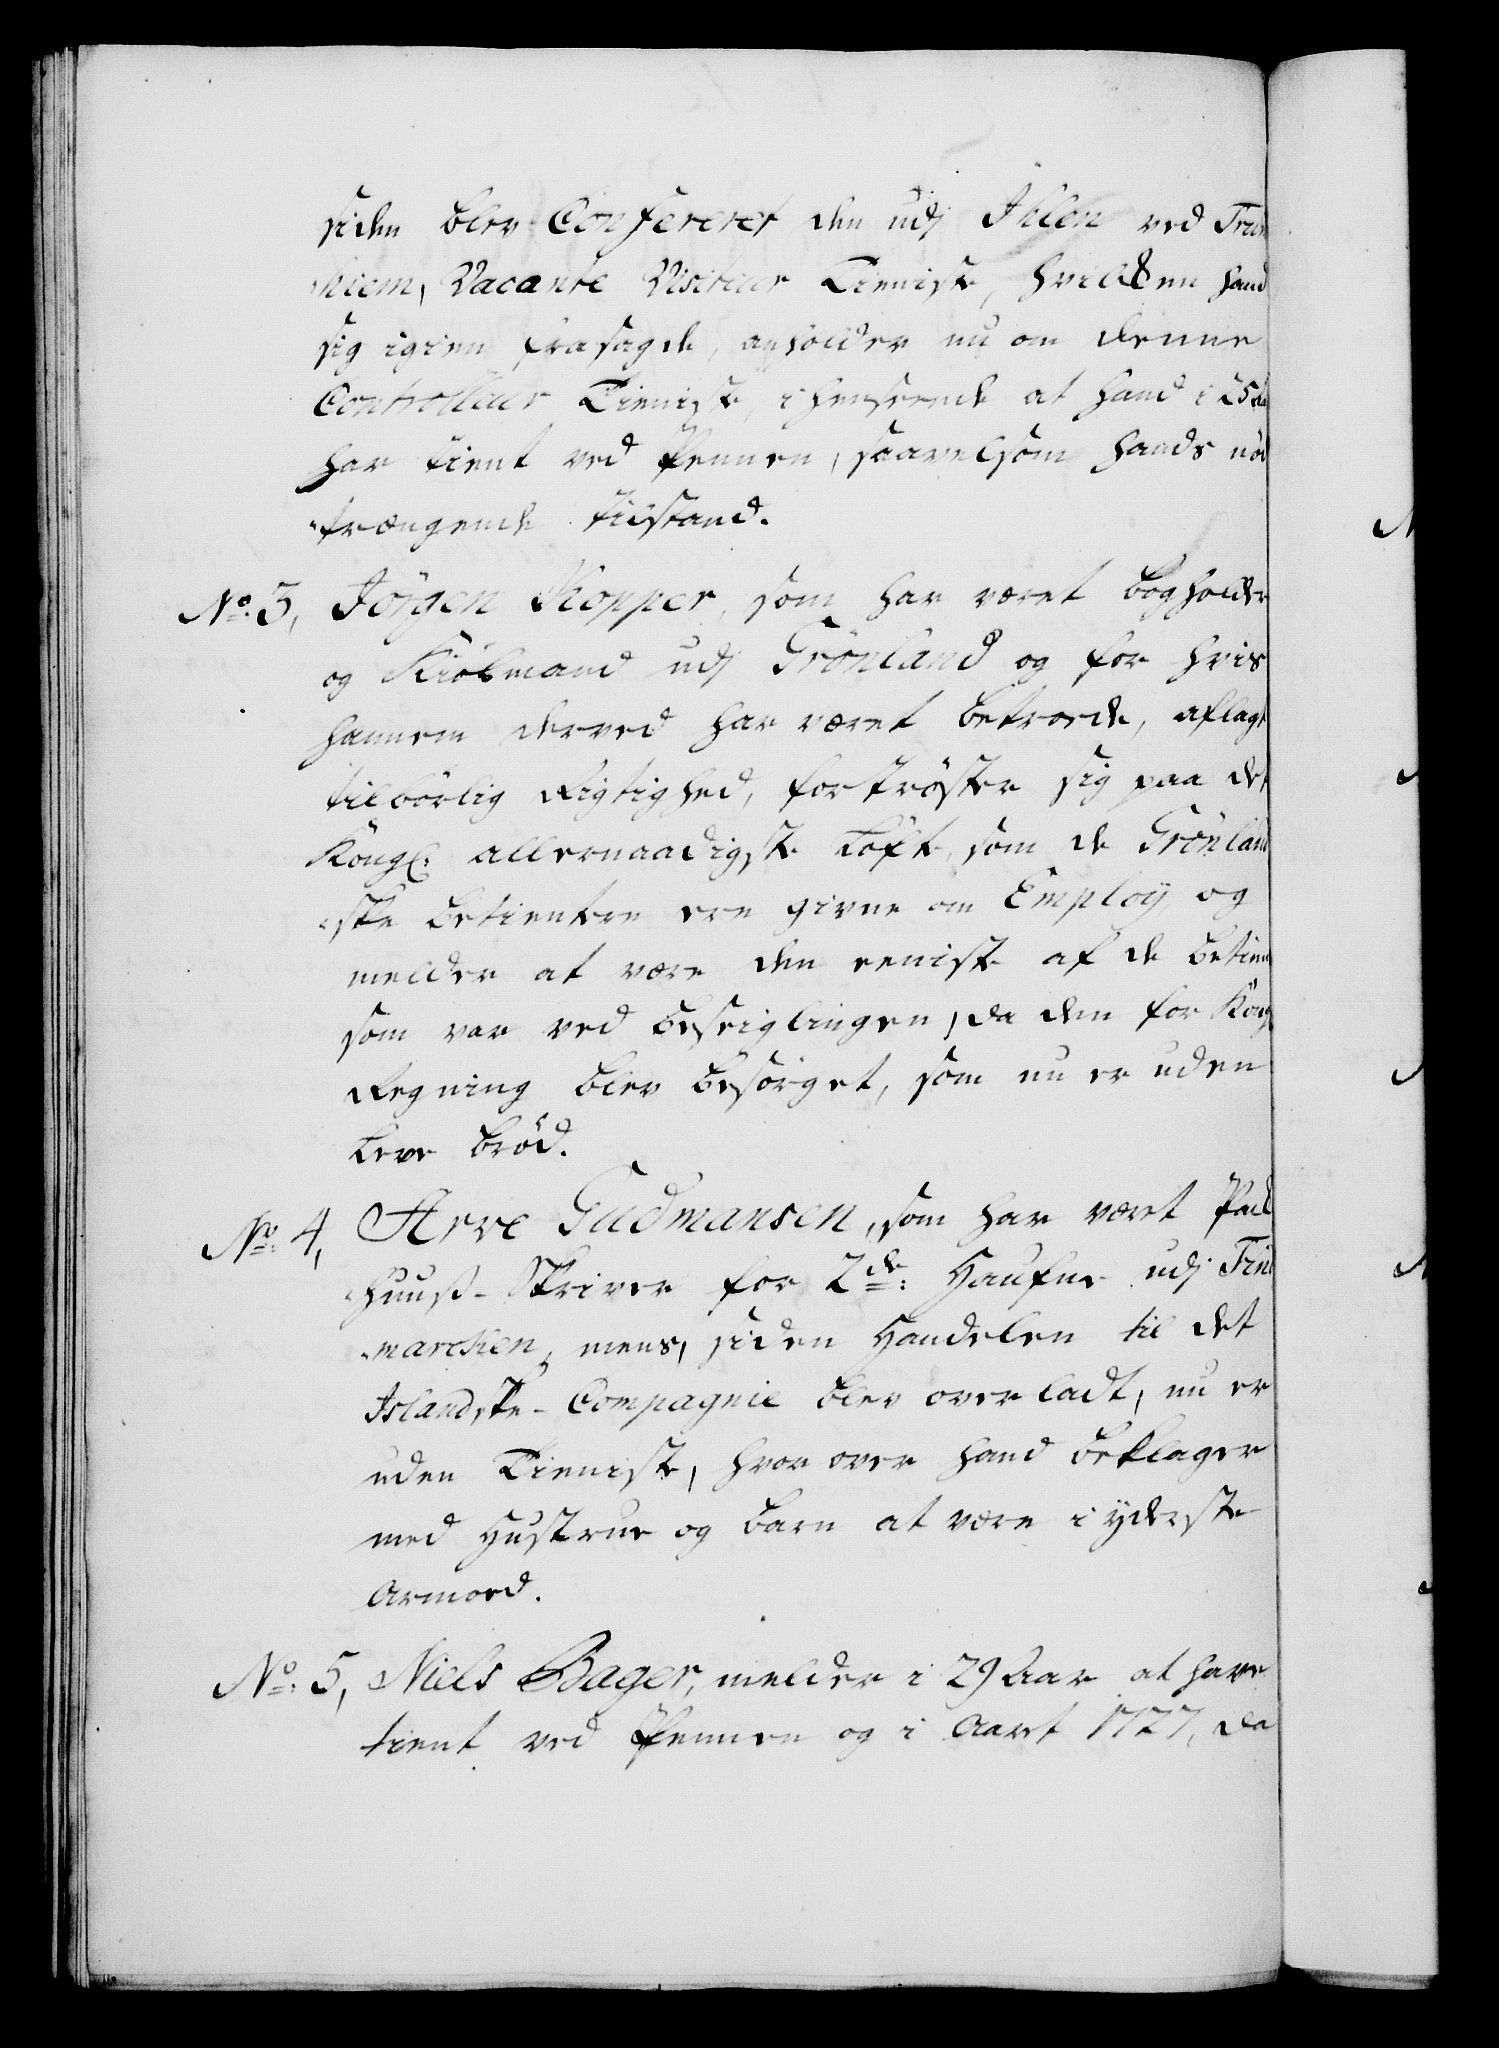 siden blev Confereret den udj Ihlen ved Tron
hiem, Vacante Visiteur Tieniste, hvilcken hand
sig igien frasagde, anholder nu om denne
Controlleur Tieniste, i henseende at hand i 25 aar
har tient ved Pennen, saavelsom hands nød
trængende tilstand.
No: 3, Jörgen Kopper, som har været bogholder
og Kiöbmand udj Grönland og for hvis
hannem derved har været betroede, aflagt
tilbörlig Rigtighed, fortröster sig paa det
Kongl: allernaadigste Löfte, som de Grönland
ske betientere ere givne om Employ og
melder at være den eeniste af de betiente
som var ved beseiglingen, da den for Kongl
Regning blev besörget, som nu er uden
Leve bröd.
No: 4, Arve Gudmansen, som har været Pack
huus-Skriver for 2de: Haufne udj Fin
marcken, mens, siden Handelen til det
Islandske-Compagnie blev overladt, nu er
uden Tieniste, hvor over hand beklager
med Hustrue og barn at være i yderste
Armoed.
No: 5, Niels Bager, melder i 29 Aar at have
tient ved Pennen og i Aaret 1727, da